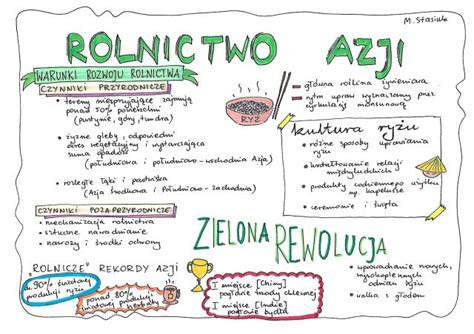 M. Stasiak
ROLNICTWO AZJI
WARUNKI ROZWOJU ROLNICTWA
CZYNNIKI PRZYRODNICZE
• tereny niesprzyjające zajmują
ponad 50% powierzchni
(pustynie, góry, tundra)
• żyzne gleby, odpowiedni
okres wegetacyjny i wystarczająca
suma opadów
(południowa i południowo-wschodnia Azja)
• rozległe łąki i pastwiska
(Azja Środkowa i Południowo-zachodnia)
CZYNNIKI POZAPRZYRODNICZE
• mechanizacja rolnictwa
• sztuczne nawadnianie
• nawozy i środki ochrony
"ROLNICZE" REKORDY AZJI
ok. 90% światowej
produkcji ryżu
ponad 80%
światowej produkcji
herbaty
RYŻ
główna roślina żywieniowa
rytm upraw wyznaczany przez
cyrkulację monsunową
kultura ryżu
• różne sposoby uprawiania
ryżu
• kształtowanie relacji
międzyludzkich
• produkty codziennego użytku
np. kapelusze
• ceremonie i święta
ZIELONA REWOLUCJA
• wprowadzanie nowych,
wysokoplennych
odmian ryżu
• walka z głodem
I miejsce [Chiny]
pogłowie trzody chlewnej
I miejsce [Indie]
pogłowie bydła